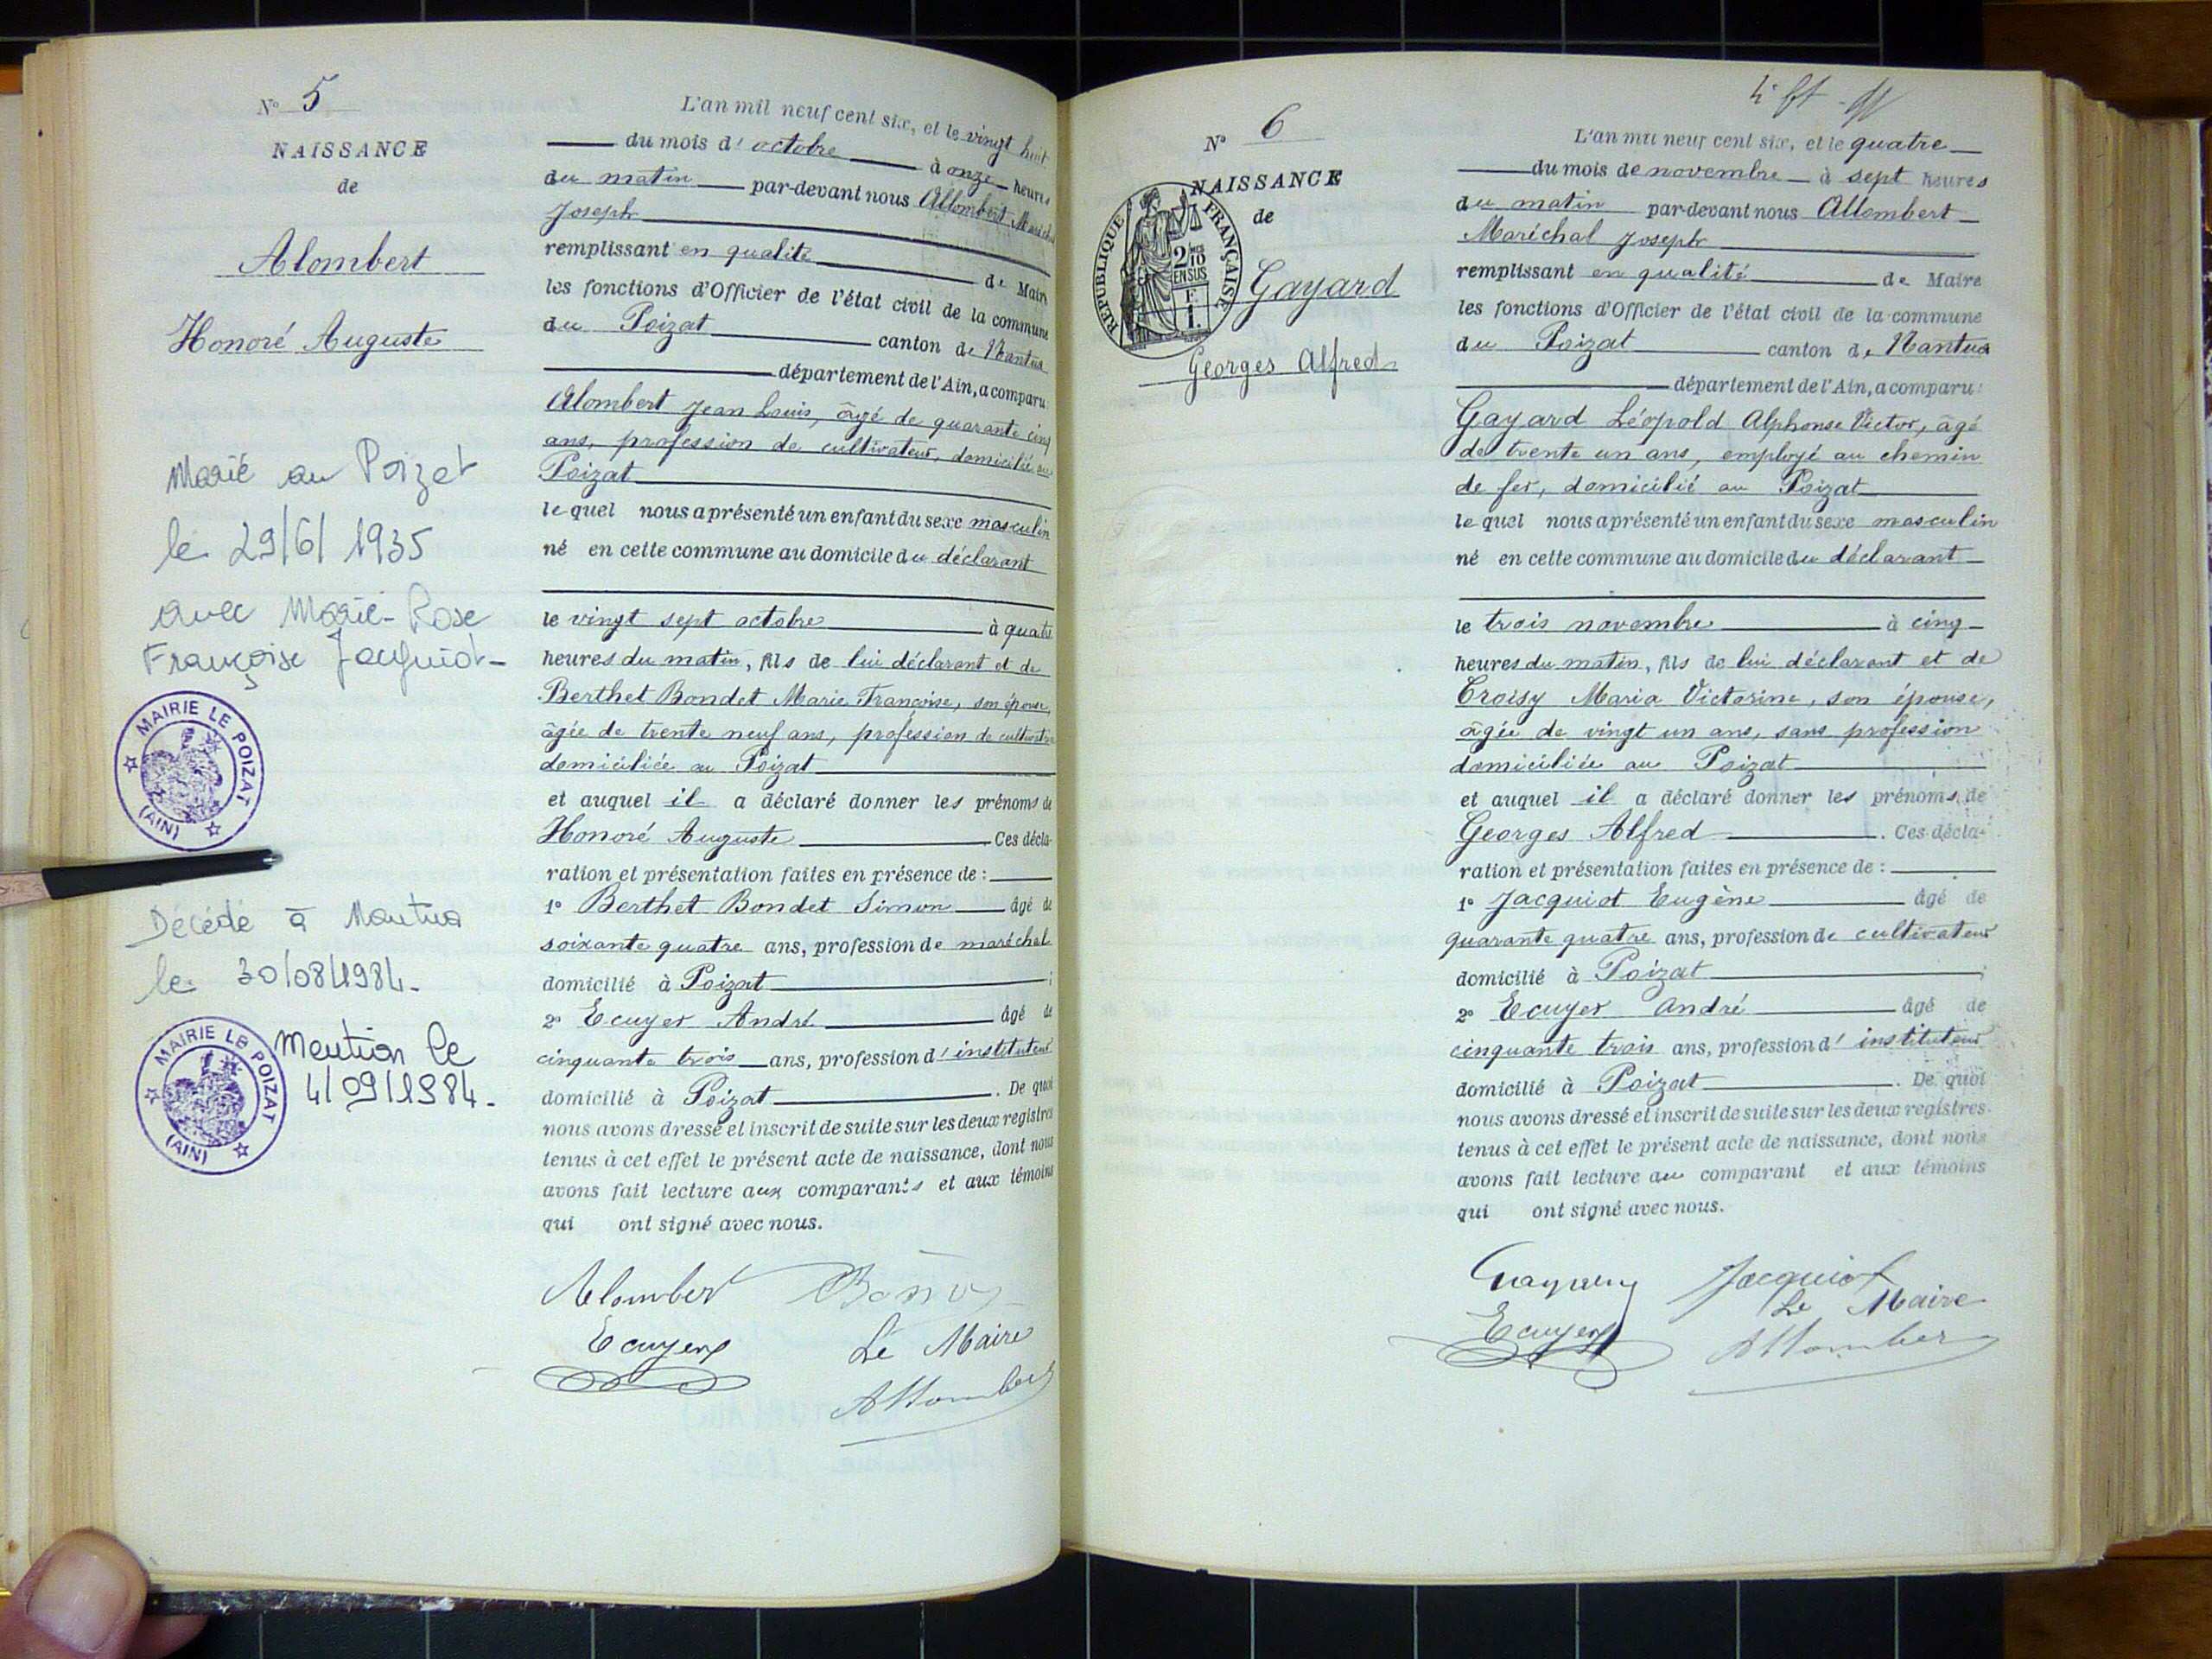 N° 5
NAISSANCE
de
Alombert
Honoré Auguste
Marié au Poizat
le 29/6/1935
avec Marie-Rose
Françoise Jacquiot-
MAIRIE LE POIZAT
(AIN)
Décédé à Nantua
le 30/08/1984.
MAIRIE LE POIZAT
(AIN)
Mention le
4/09/1984.
L'an mil neuf cent six, et le vingt huit
du mois d'octobre à onze heures
du matin par-devant nous Allombert Maréchal
Joseph
remplissant en qualité de Maire
les fonctions d'Officier de l'état civil de la commune
du Poizat canton de Nantua
département de l'Ain, a comparu
Alombert Jean Louis, âgé de quarante cinq
ans, profession de cultivateur, domicilié au
Poizat
lequel nous a présenté un enfant du sexe masculin
né en cette commune au domicile du déclarant
le vingt sept octobre à quatre
heures du matin, fils de lui déclarant et de
Berthet Bondet Marie Françoise, son épouse,
âgée de trente neuf ans, profession de cultivatrice
domiciliée au Poizat
et auquel il a déclaré donner les prénoms de
Honoré Auguste Ces décla-
ration et présentation faites en présence de :
1° Berthet Bondet Simon âgé de
soixante quatre ans, profession de maréchal
domicilié à Poizat ;
2° Ecuyer André âgé de
cinquante trois ans, profession d'instituteur
domicilié à Poizat. De quoi
nous avons dressé et inscrit de suite sur les deux registres
tenus à cet effet le présent acte de naissance, dont nous
avons fait lecture aux comparants et aux témoins
qui ont signé avec nous.
Alombert
Ecuyer Le Maire
Allombert
N° 6
NAISSANCE
de
REPUBLIQUE FRANÇAISE
2/10 EN SUS
F.
1.
Gayard
Georges Alfred
L'an mil neuf cent six, et le quatre
du mois de novembre à sept heures
du matin par-devant nous Allombert
Maréchal Joseph
remplissant en qualité de Maire
les fonctions d'Officier de l'état civil de la commune
du Poizat canton de Nantua
département de l'Ain, a comparu :
Gayard Léopold Alphonse Victor, âgé
de trente un ans, employé au chemin
de fer, domicilié au Poizat
lequel nous a présenté un enfant du sexe masculin
né en cette commune au domicile du déclarant
le trois novembre à cinq
heures du matin, fils de lui déclarant et de
Croisy Maria Victorine, son épouse,
âgée de vingt un ans, sans profession
domiciliée au Poizat
et auquel il a déclaré donner les prénoms de
Georges Alfred. Ces décla-
ration et présentation faites en présence de :
1° Jacquiot Eugène âgé de
quarante quatre ans, profession de cultivateur
domicilié à Poizat ;
2° Ecuyer André âgé de
cinquante trois ans, profession d'instituteur
domicilié à Poizat. De quoi
nous avons dressé et inscrit de suite sur les deux registres
tenus à cet effet le présent acte de naissance, dont nous
avons fait lecture au comparant et aux témoins
qui ont signé avec nous.
Jacquiot
Ecuyer Le Maire
Allombert